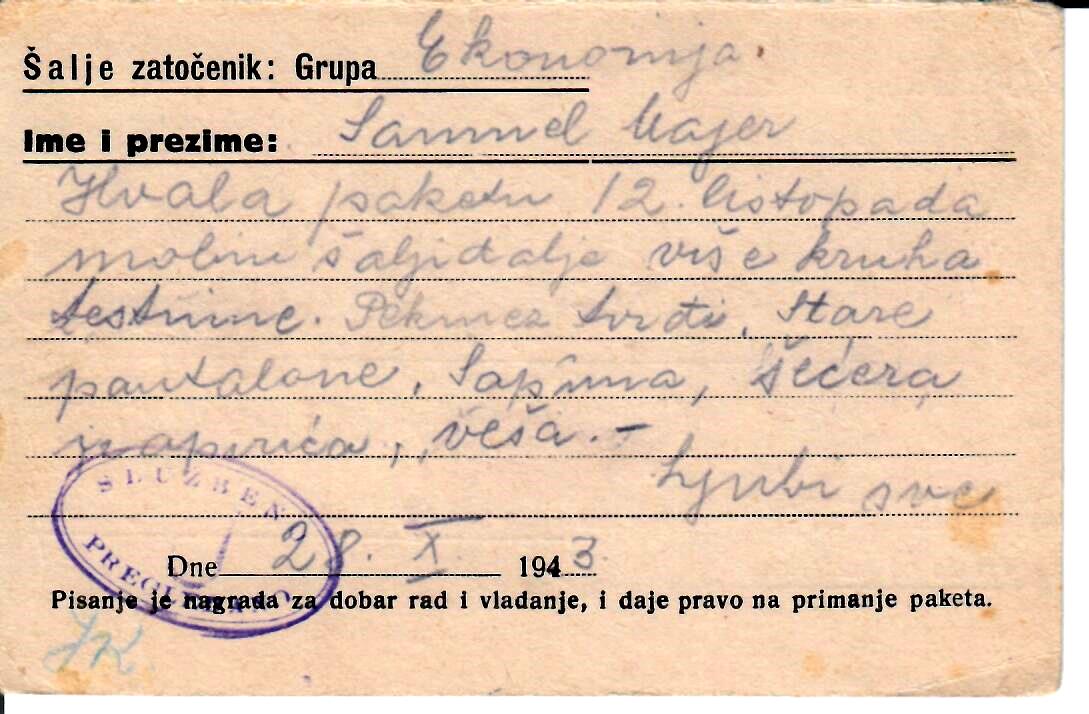 Šalje zatočenik: Grupa Ekonomija.
Ime i prezime: Samuel Majer
Hvala paketu 12. listopada
molim šalji dalje više kruha
testnine. Pekmez tvrđi, stare
pantalone, Sapuna, šećera,
papirića, veša. -
Ljubi sve
SLUŽBENO
PREGLEDANO
Dne 28. X. 1943.
Pisanje je nagrada za dobar rad i vladanje, i daje pravo na primanje paketa.